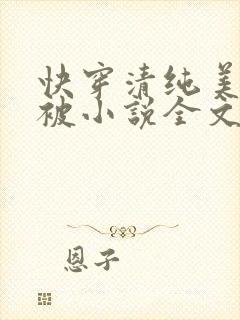 快穿清纯美
被小说全文
恩子